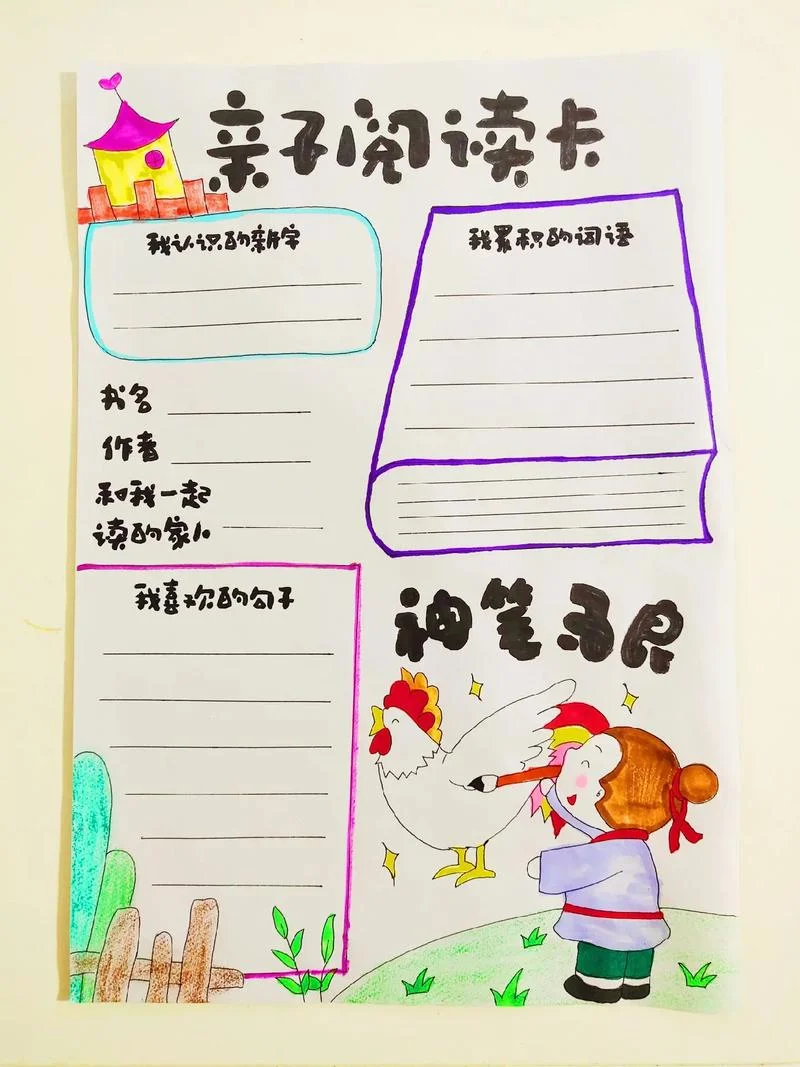 亲子阅读卡
我认识的新字
我累积的词语
书名
作者
和我一起
读的家人
我喜欢的句子
神笔马良